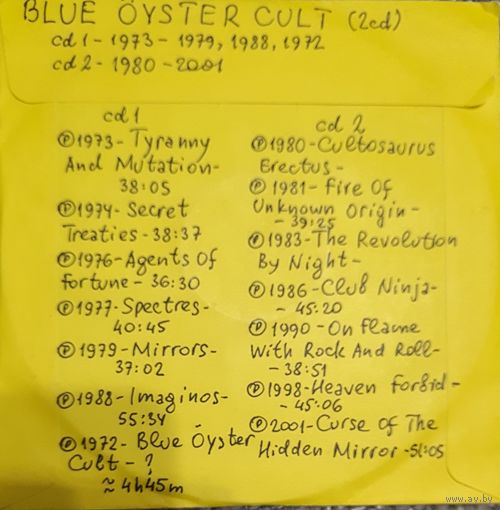 BLUE ÖYSTER CULT (2cd)
cd 1 - 1973 - 1979, 1988, 1972
cd 2 - 1980 - 2001
cd 1
℗ 1973 - Tyranny
And Mutation -
38:05
℗ 1974 - Secret
Treaties - 38:37
℗ 1976 - Agents Of
fortune - 36:30
℗ 1977 - Spectres -
40:45
℗ 1979 - Mirrors -
37:02
℗ 1988 - Imaginos -
55:34
℗ 1972 - Blue Öyster
Cult - ?
≈ 4h45m
cd 2
℗ 1980 - Cultosaurus
Erectus -
℗ 1981 - Fire Of
Unknown Origin -
- 39:25
℗ 1983 - The Revolution
By Night -
℗ 1986 - Club Ninja -
- 45:20
℗ 1990 - On flame
With Rock And Roll -
- 38:51
℗ 1998 - Heaven forbid -
- 45:06
℗ 2001 - Curse Of The
Hidden Mirror - 51:05
www.av.by